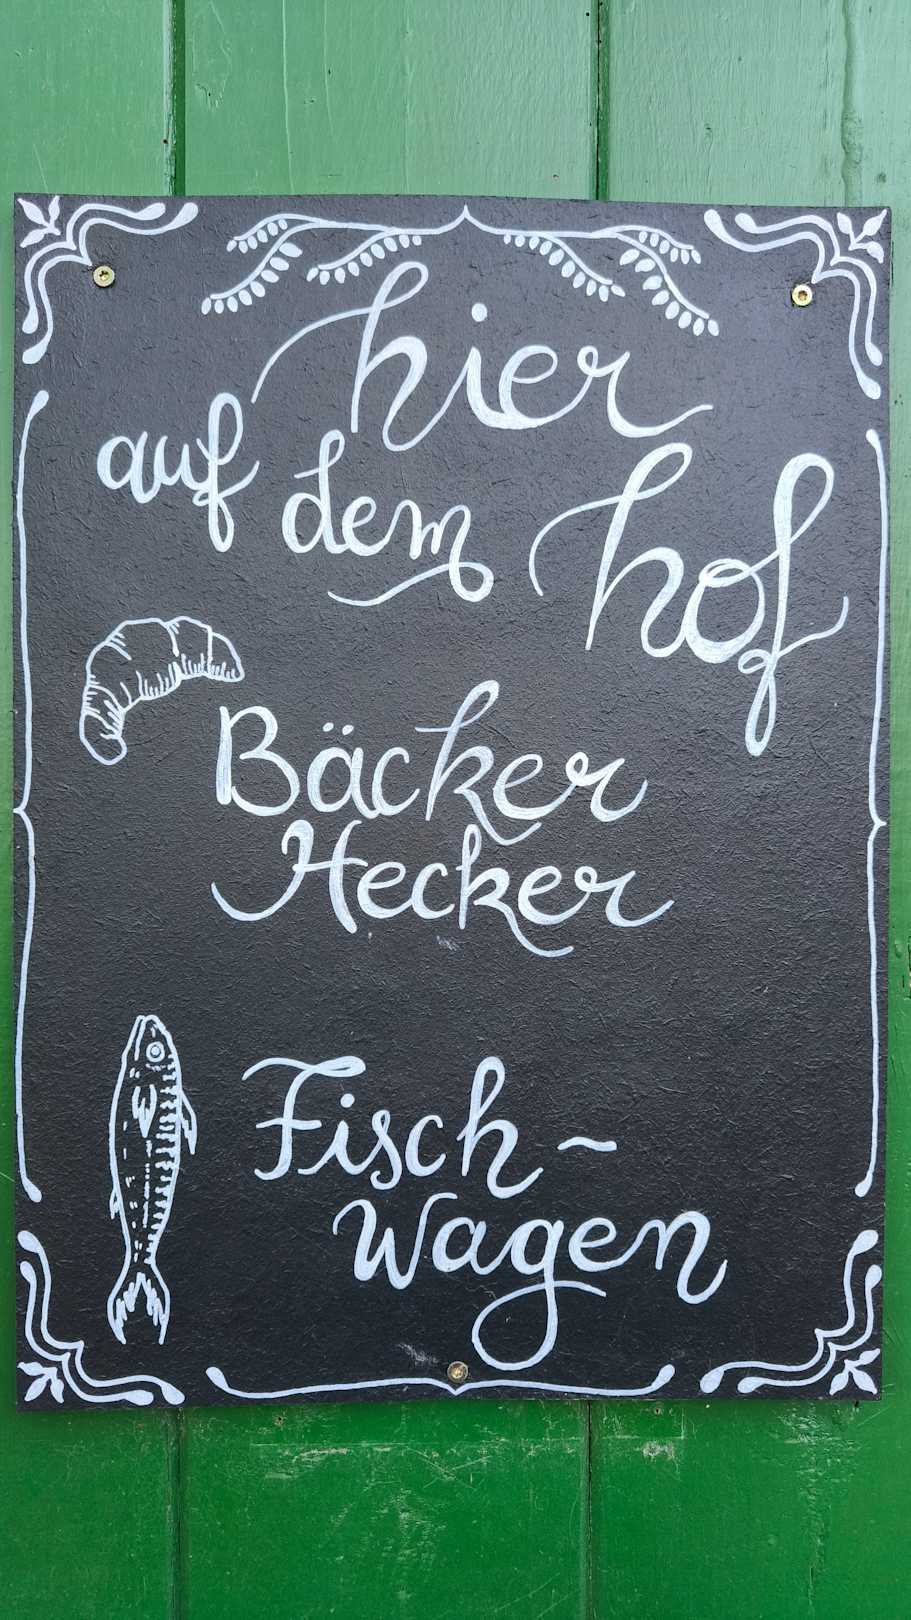 hier
auf dem hof
Bäcker
Hecker
Fisch-
Wagen